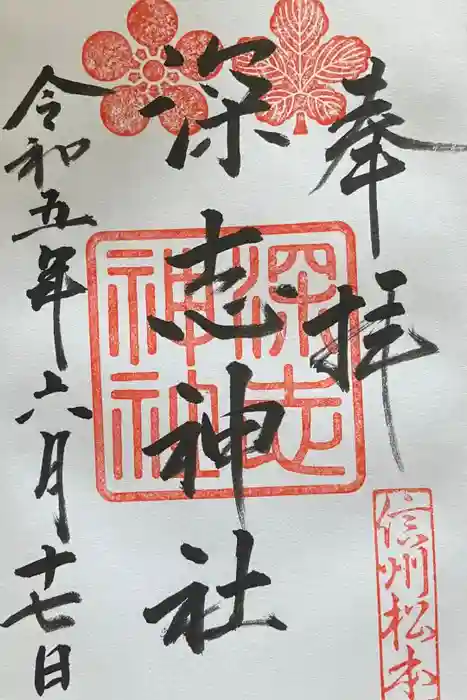 奉拝
深志神社
深志神社
令和五年六月十七日
信州松本